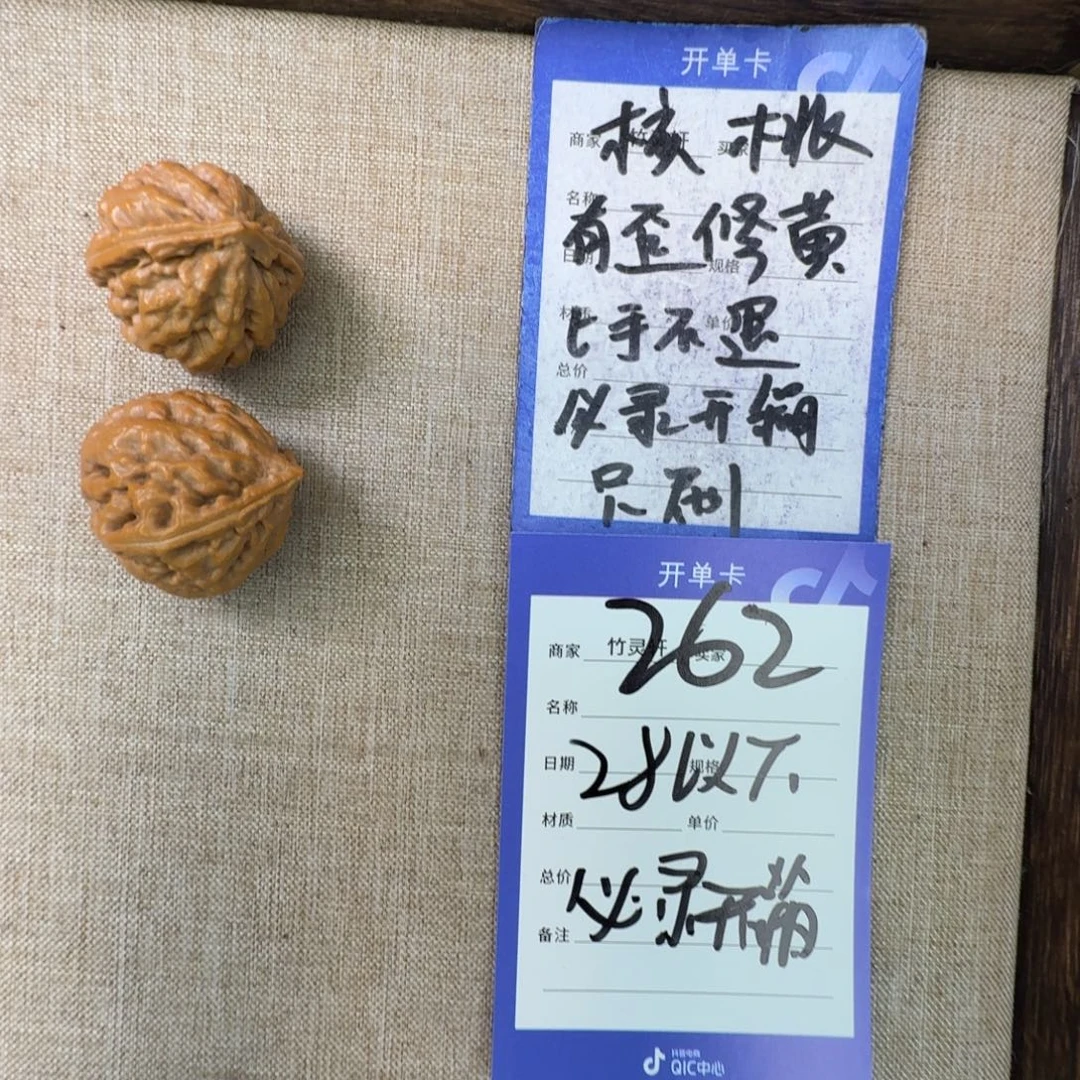 开单卡
核桃
商家 竹灵轩 买家
名称
有歪修黄
日期 规格
上手不退
材质 单价
总价
必录开箱
只刷
开单卡
262
商家 竹灵轩 买家
名称
28以下
日期 规格
材质 单价
总价
必录开箱
备注
抖音电商
QIC中心